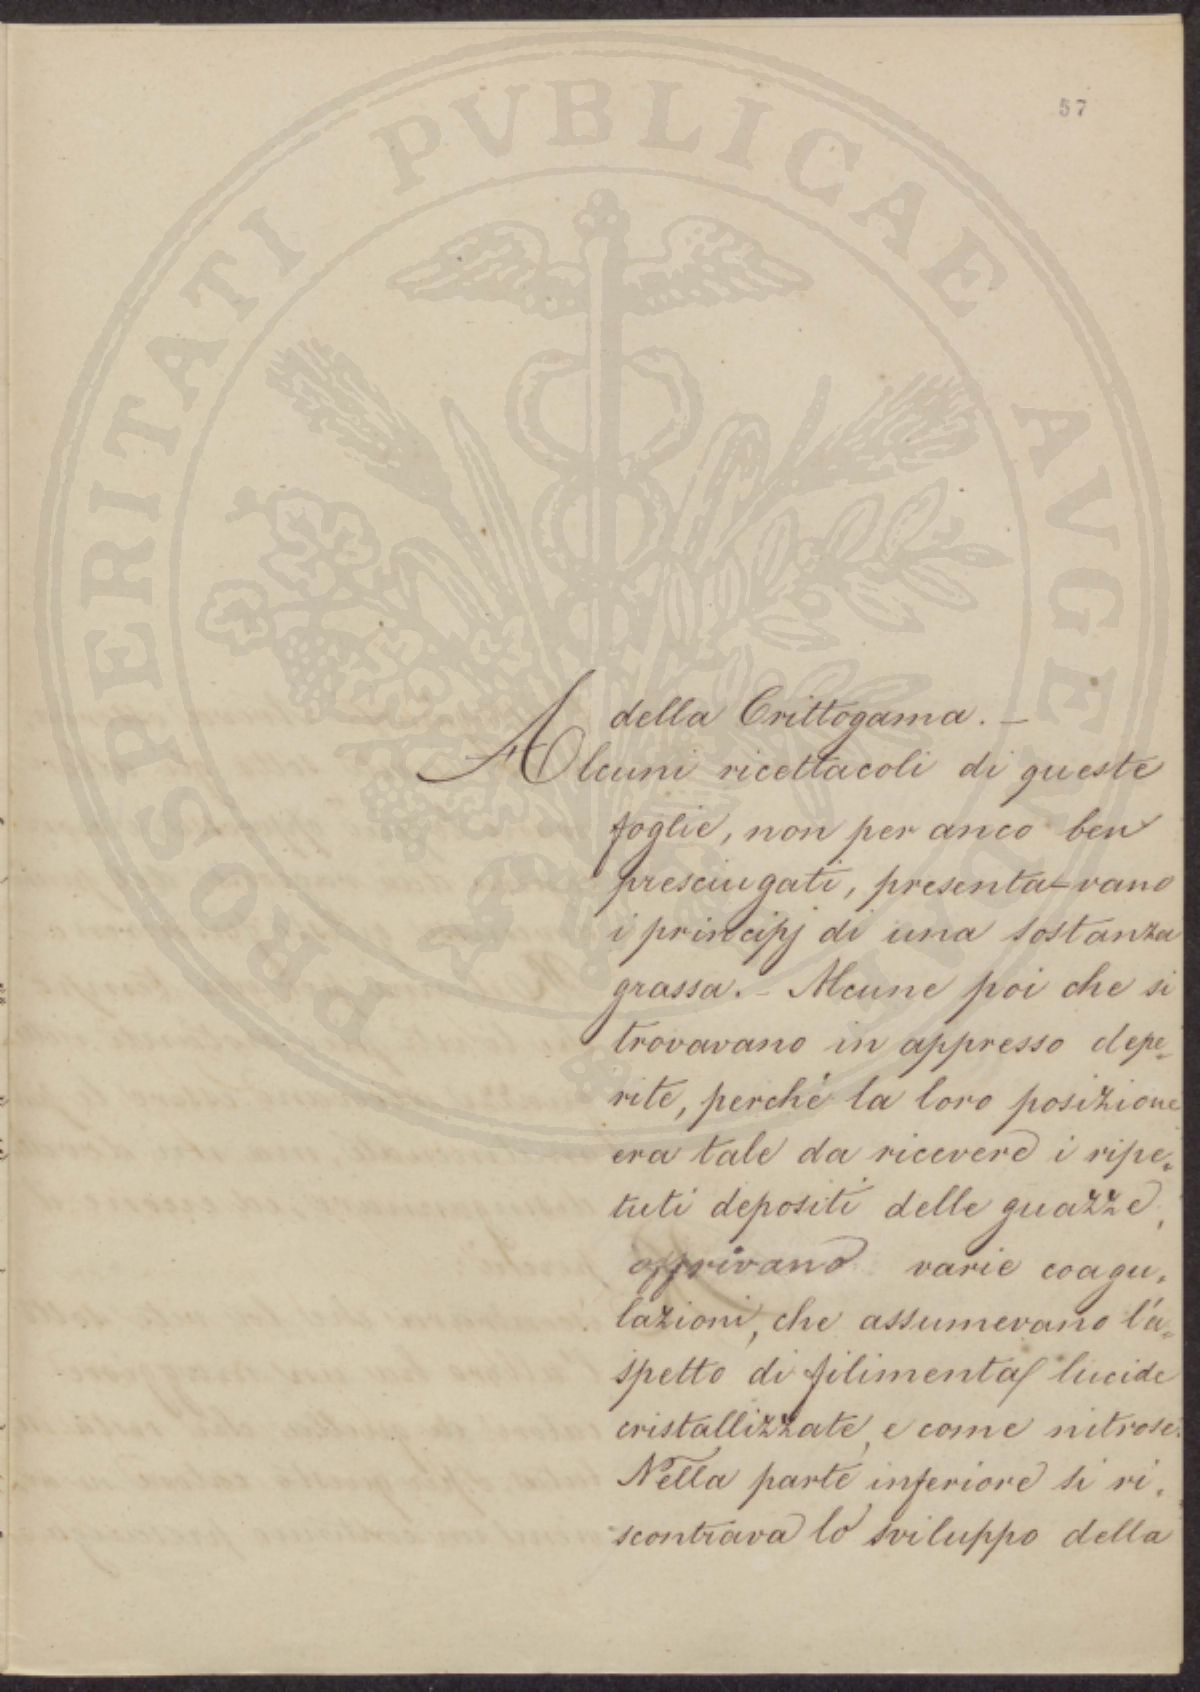 57
PROSPERITATI PVBLICAE AVGENDAE
della Crittogama. —
Alcuni ricettacoli di queste
foglie, non per anco ben
presciugati, presenta-vano
i principj di una sostanza
grassa. - Alcune poi che si
trovavano in appresso depe=
rite, perché la loro posizione
era tale da ricevere i ripe=
tuti depositi delle guazze,
offrivano varie coagu=
lazioni, che assumevano l'a=
spetto di filimenta lucide
cristallizzate, e come nitrose.
Nella parte inferiore si ri=
scontrava lo sviluppo della